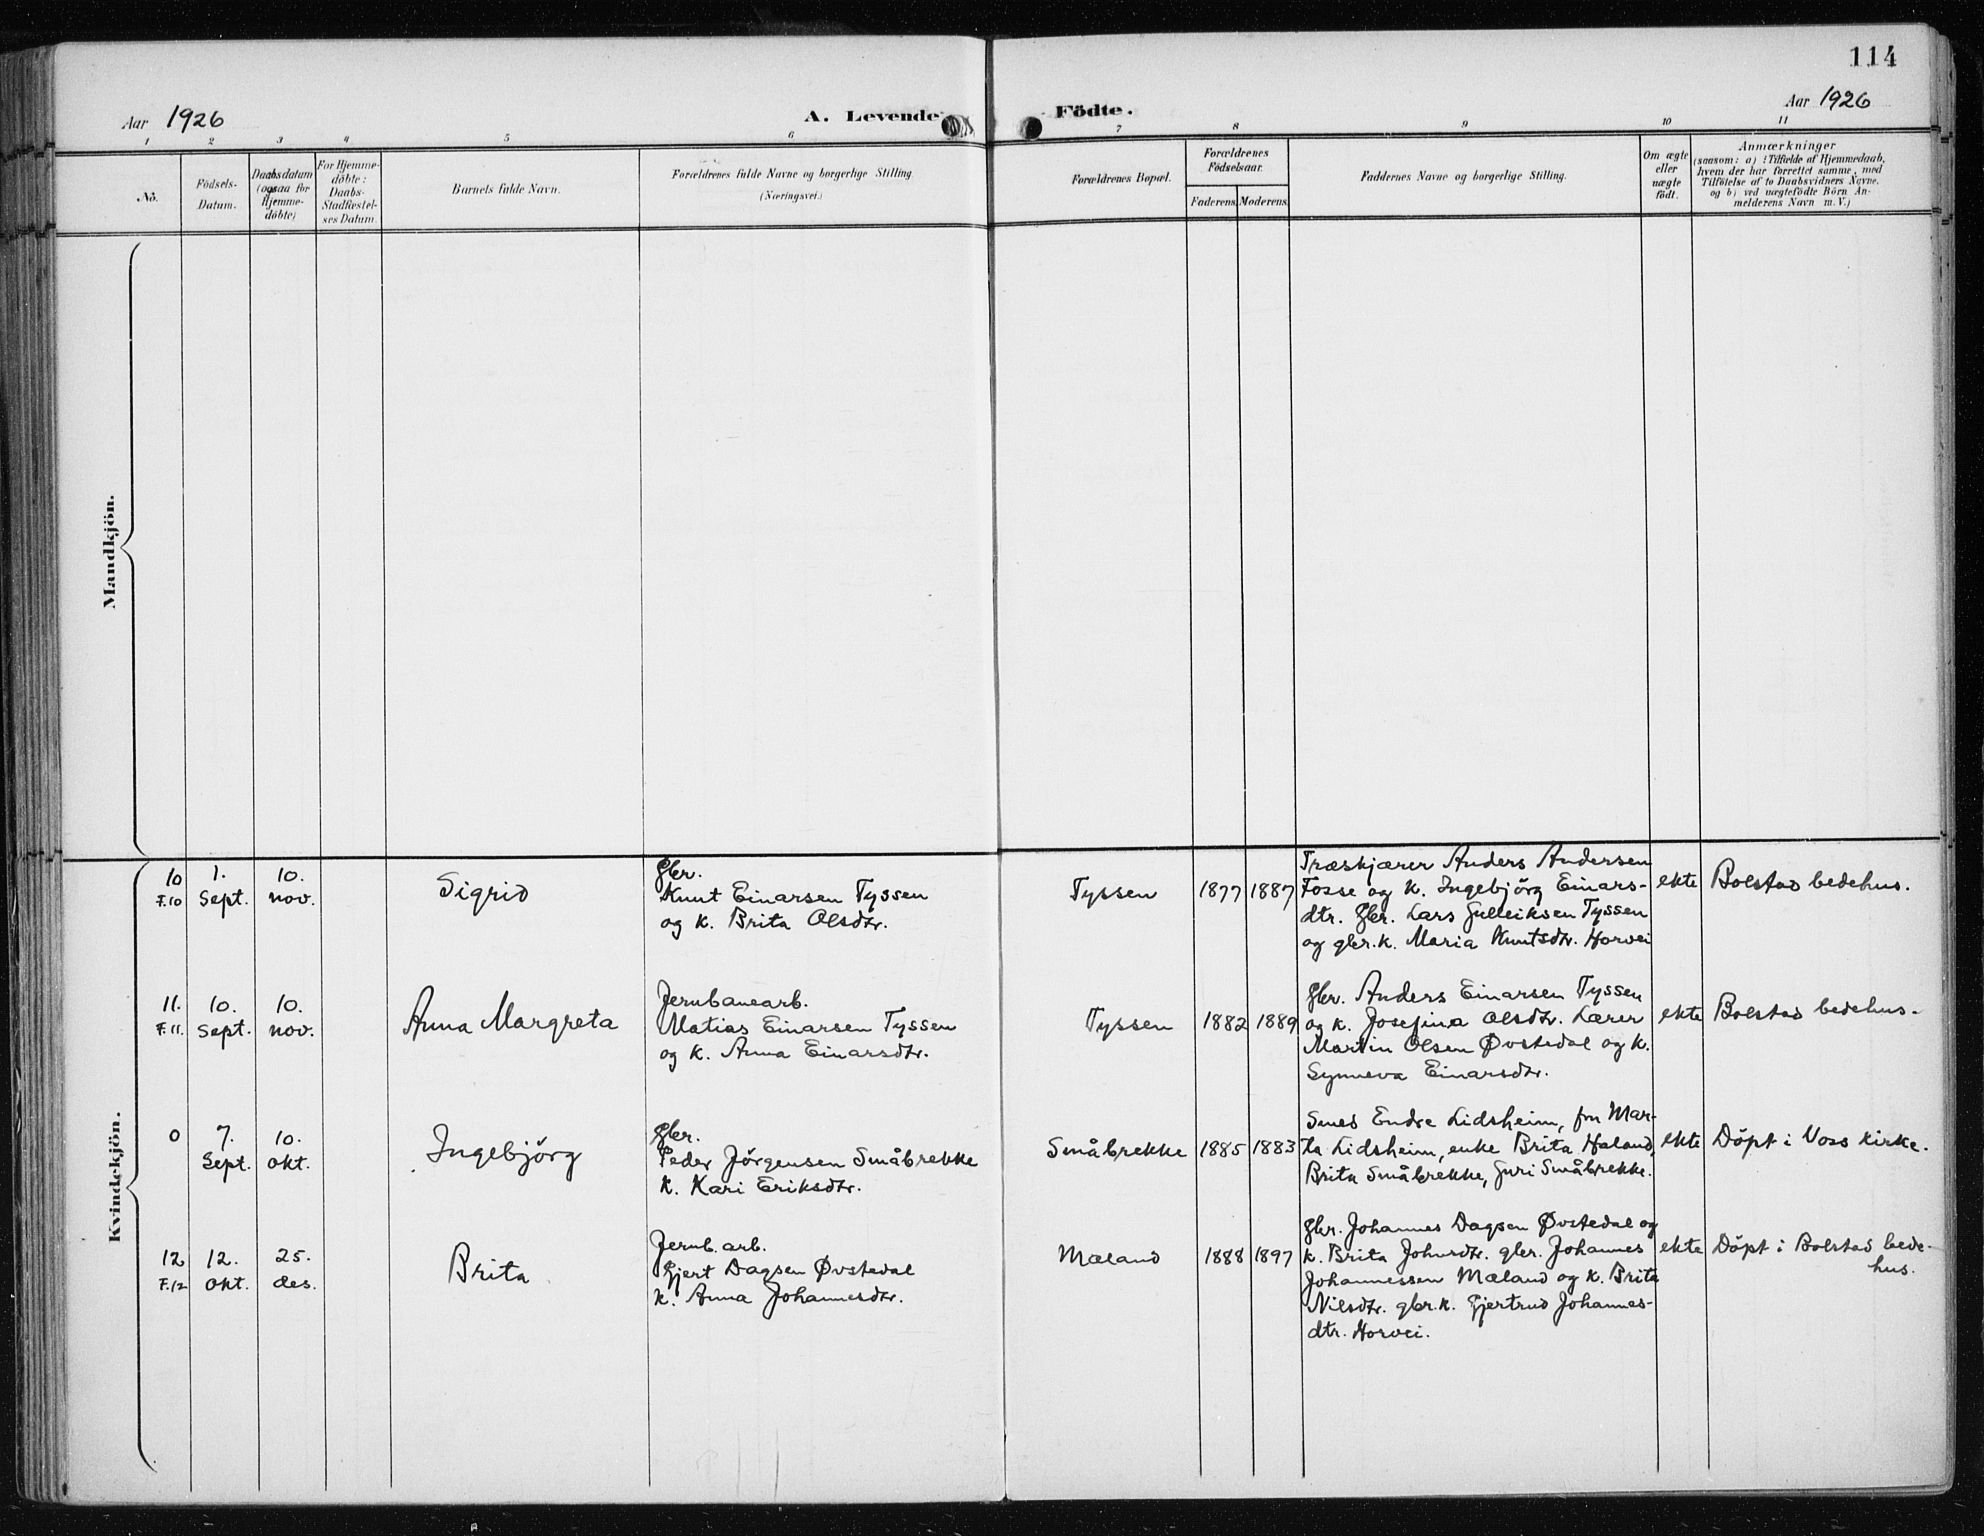 114
Aar 1926
A. Levende Födte.
Aar 1926
1 2 3 4 5 6 7 8 9 10 11
No.
Födsels-
Datum.
Daabsdatum
(ogsaa for
Hjemme-
döbte)
For Hjemme-
döbte:
Daabs-
Stadfæstel-
ses Datum.
Barnets fulde Navn.
Forældrenes fulde Navne og borgerlige Stilling
(Næringsvei.)
Forældrenes Bopæl.
Forældrenes
Födselsaar.
Faderens. Moderens.
Faddernes Navne og borgerlige Stilling.
Om ægte
eller
uægte
födt.
Anmærkninger
(saasom: a) i Tilfælde af Hjemmedaab,
hvem der har forrettet samme, med
Tilföielse af to Daabsvidners Navne,
og b) ved uægtefödte Börn An-
melderens Navn m. V.)
Mandkjön.
Kvindekjön.
10
F.10
1.
Sept.
10.
nov.
Sigrid
Gbr.
Knut Einarsen Tyssen
og k. Brita Olsdtr.
Tyssen
1877
1887
Træskjærer Anders Andersen
Fosse og k. Ingebjörg Einars-
dtr. Gbr. Lars Gulleiksen Tyssen
og gbr.k. Maria Knutsdtr. Horvei
ekte
Bolstad bedehus.
11.
F.11.
10.
Sept.
10.
nov.
Anna Margreta
Jernbanearb.
Matias Einarsen Tyssen
og k. Anna Einarsdtr.
Tyssen
1882
1889
Gbr. Anders Einarsen Tyssen
og k. Josefina Olsdtr. Lærer
Martin Olsen Øvstedal og k.
Synneva Einarsdtr.
ekte
Bolstad bedehus.
0
7.
Sept.
10.
okt.
Ingebjörg
Gbr.
Peder Jörgensen Småbrekke
k. Kari Eriksdtr.
Småbrekke
1885
1883
Smed Endre Lidsheim, fru Mar-
ta Lidsheim, enke Brita Håland,
Brita Småbrekke, Guri Småbrekke.
ekte
Döpt i Voss kirke.
12
F.12
12.
okt.
25.
des.
Brita
Jernb.arb.
Gjert Dagsen Øvstedal
k. Anna Johannesdtr.
Mæland
1888
1897
Gbr. Johannes Dagsen Øvstedal og
k. Brita Johnsdtr. gbr. Johannes
Johannessen Mæland og k. Brita
Nilsdtr. gbr.k. Gjertrud Johannes-
dtr. Horvei.
ekte
Döpt i Bolstad bede-
hus.